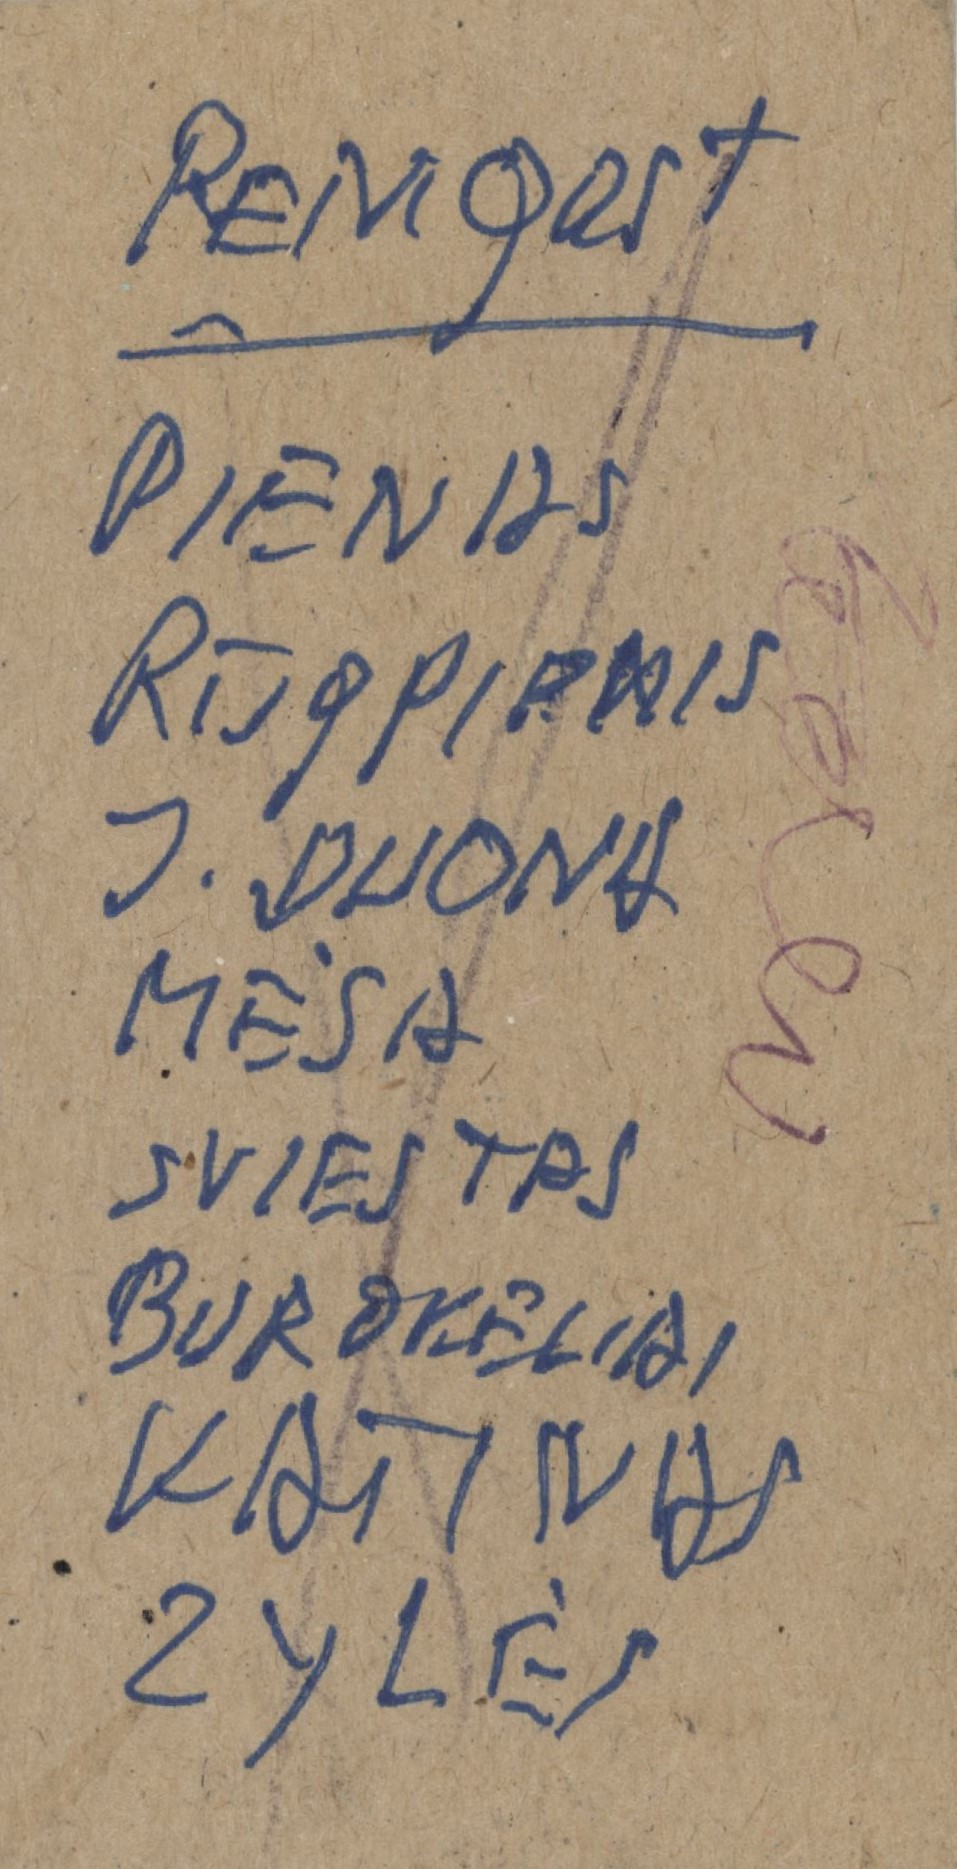 PENIQAST
PIENAS
RŪGPIENIS
J. DUONA
MĖSA
SVIESTAS
BUROKELIAI
KATINAS
ZYLĖS